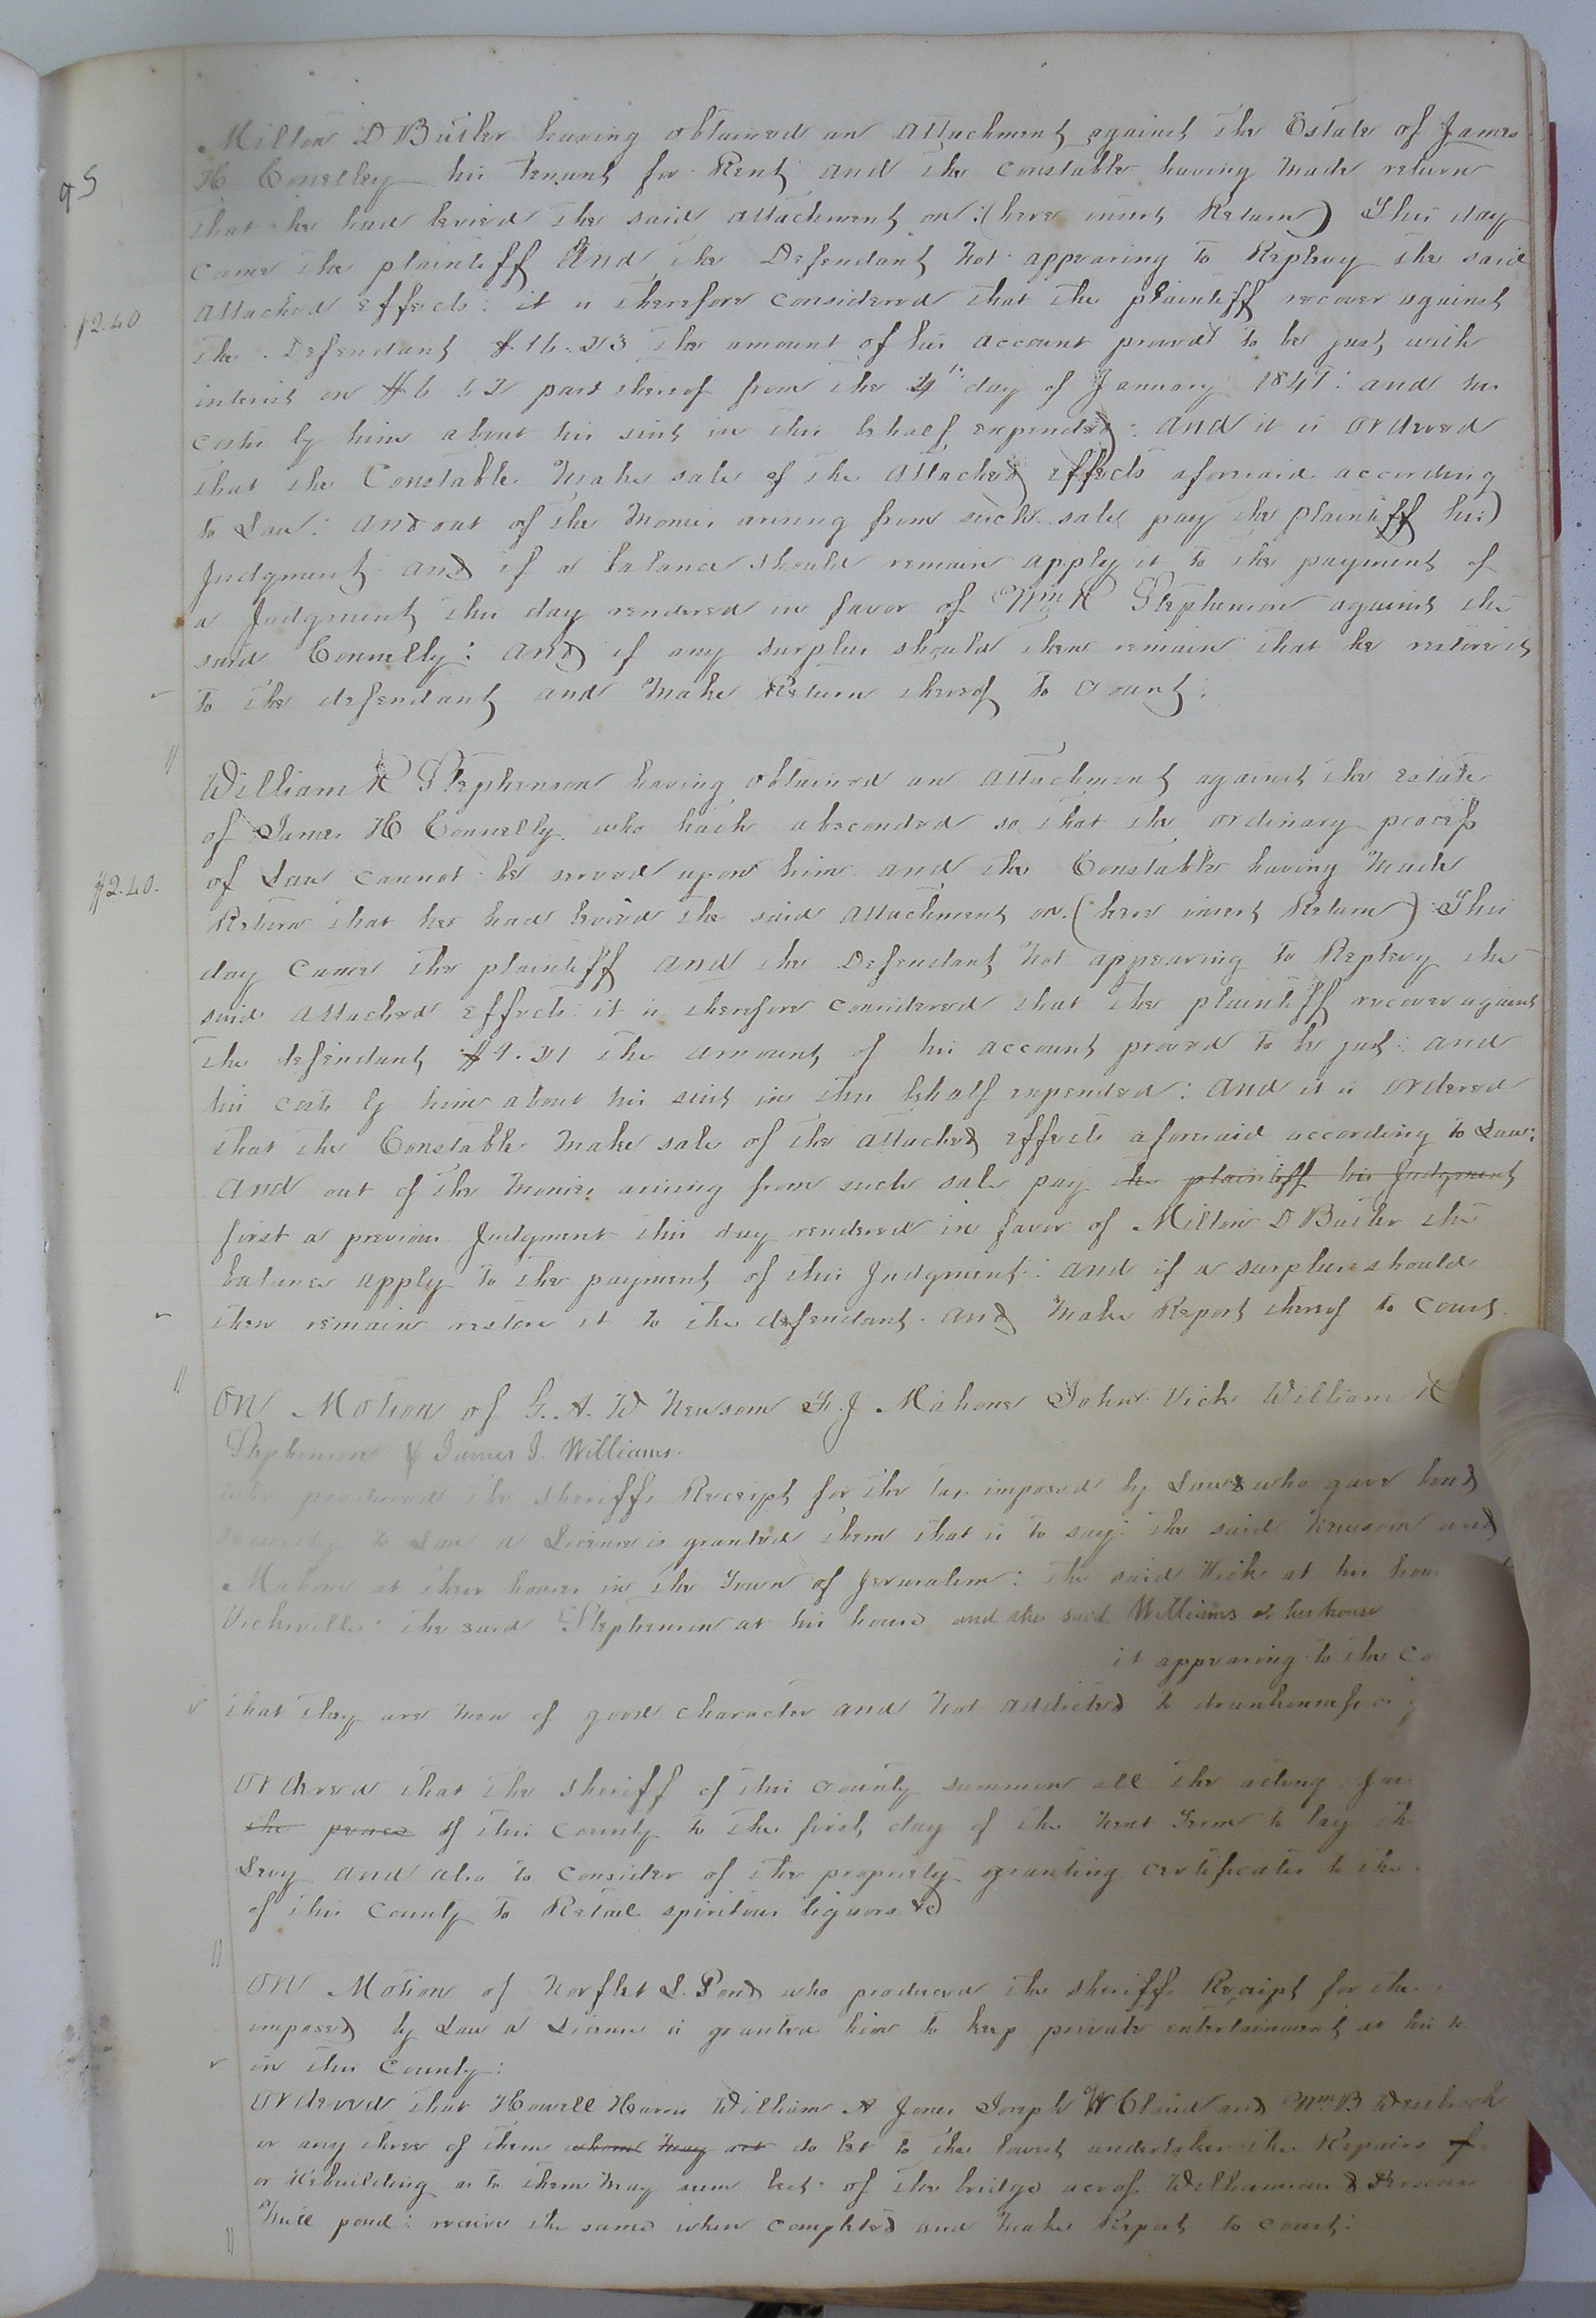 Milton D Butler having obtained an attachment against the Estate of James
H Conelley his tenant for Rent and the Constable having made return
95
that he had levied the said attachment on: (here insert Return) This day
came the plaintiff And the Defendant not appearing to Replevy the said
attached effects: it is therefore considered that the plaintiff recover against
$2.40
the Defendant $16.23 the amount of his account proved to be just, with
interest on $6 62 part thereof from the 4th day of January 1847: and his
costs by him about his suit in this behalf expended: and it is ordered
that the Constable make sale of the attached effects aforesaid according
to Law: and out of the monies arising from such sale pay the plaintiff his
Judgment and if a balance should remain apply it to the payment of
a Judgment this day rendered in favor of Wm R Stephenson against the
said Connelly: and if any surplus should then remain that he restore it
to the defendant and make Return thereof to Court:
William R Stephenson having obtained an attachment against the estate
of James H Connelly who hath absconded so that the ordinary process
of Law cannot be served upon him and the Constable having made
$2.40.
Return that he had levied the said attachment on (here insert Return) This
day came the plaintiff and the Defendant not appearing to Replevy the
said attached effects it is therefore considered that the plaintiff recover against
the defendant $9.21 the amount of his account proved to be just: and
his costs by him about his suit in this behalf expended: and it is ordered
that the Constable make sale of the attached effects aforesaid according to Law:
and out of the monies arising from such sale pay the plaintiff his Judgment
first a previous Judgment this day rendered in favor of Milton D Butler the
balance apply to the payment of this Judgment: and if a surplus should
then remain restore it to the defendant and make Report thereof to Court.
On Motion of G. A. W Newsom F. J Mahone John Vick William R
Stephenson & James J. Williams.
who produced the sheriffs Receipt for the tax imposed by Law & who gave bond
security to Law a License is granted them that is to say: the said Newsom and
Mahone at their houses in the Town of Jerusalem: the said Vick at his hou
Vicksville: the said Stephenson at his house and the said Williams at his house
it appearing to the Co
that they are men of good character and not addicted to drunkenness or
Ordered that the sheriff of this County summon all the acting Jus
the peace of this County to the first day of the next Term to lay the
Levy and also to consider of the propriety granting certificates to the
of this County to Retail spiritous liquors &c
On Motion of Norflet L. Pond who produced the sheriffs Receipt for the
imposed by Law a License is granted him to keep private entertainment at his h
in this County:
Ordered that Howell Harris William A Jones Joseph W Claud and Wm B Westbrook
or any three of them whom may act do let to the lowest undertaker the Repairs
or Rebuilding as to them may seem best of the bridge across Williamsons &
Mill pond: receive the same when completed and make Report to Court: